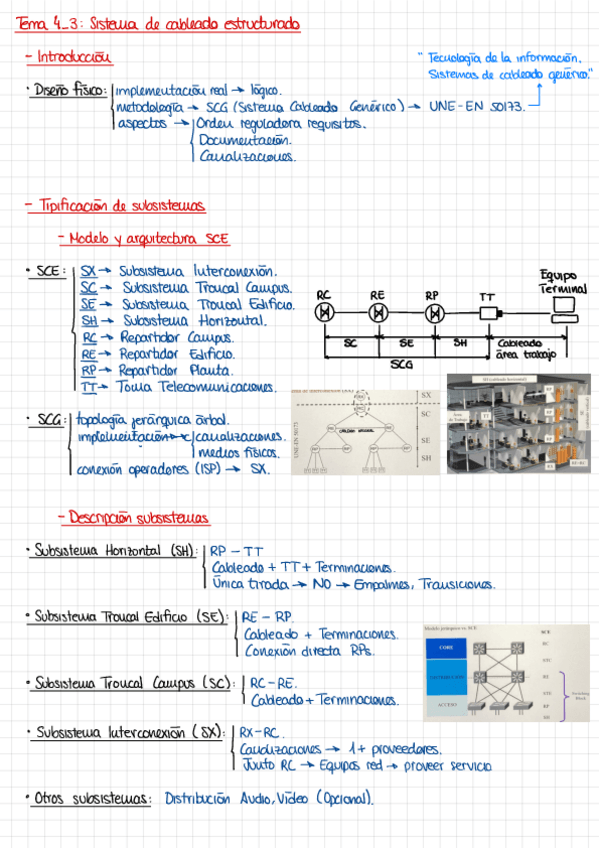 Tema 4_3: Sistema de cableado estructurado
- Introducción
"Tecnología de la información.
Sistemas de cableado genérico."
· Diseño físico: implementación real → lógico.
metodología → SCG (Sistema Cableado Genérico) → UNE-EN 50173.
aspectos → Orden reguladora requisitos.
Documentación.
Canalizaciones.
- Tipificación de subsistemas
- Modelo y arquitectura SCE
· SCE: SX → Subsistema Interconexión.
SC → Subsistema Troncal Campus.
SE → Subsistema Troncal Edificio.
SH → Subsistema Horizontal.
RC → Repartidor Campus.
RE → Repartidor Edificio.
RP → Repartidor Planta.
TT → Toma Telecomunicaciones.
Equipo
Terminal
RC RE RP TT
SC SE SH Cableado
área trabajo
SCG
· SCG: topología jerárquica árbol.
implementación → canalizaciones.
medios físicos.
conexión operadores (ISP) → SX.
SX
SC
SE
SH
UNE-EN 50173
TT
RP
RP
RP
RE
- Descripción subsistemas
· Subsistema Horizontal (SH): RP - TT
Cableado + TT + Terminaciones.
Única tirada → NO → Empalmes, Transiciones.
· Subsistema Troncal Edificio (SE): RE - RP.
Cableado + Terminaciones.
Conexión directa RPs.
Modelo jerárquico vs. SCE
SCE
CORE
RC
STC
RE
STE
ACCESO
RP
SH
Switching
Block
· Subsistema Troncal Campus (SC): RC-RE.
Cableado + Terminaciones.
· Subsistema Interconexión (SX): RX-RC.
Canalizaciones → 1+ proveedores.
Junto RC → Equipos red → proveer servicio
· Otros subsistemas: Distribución Audio, Vídeo (Opcional).